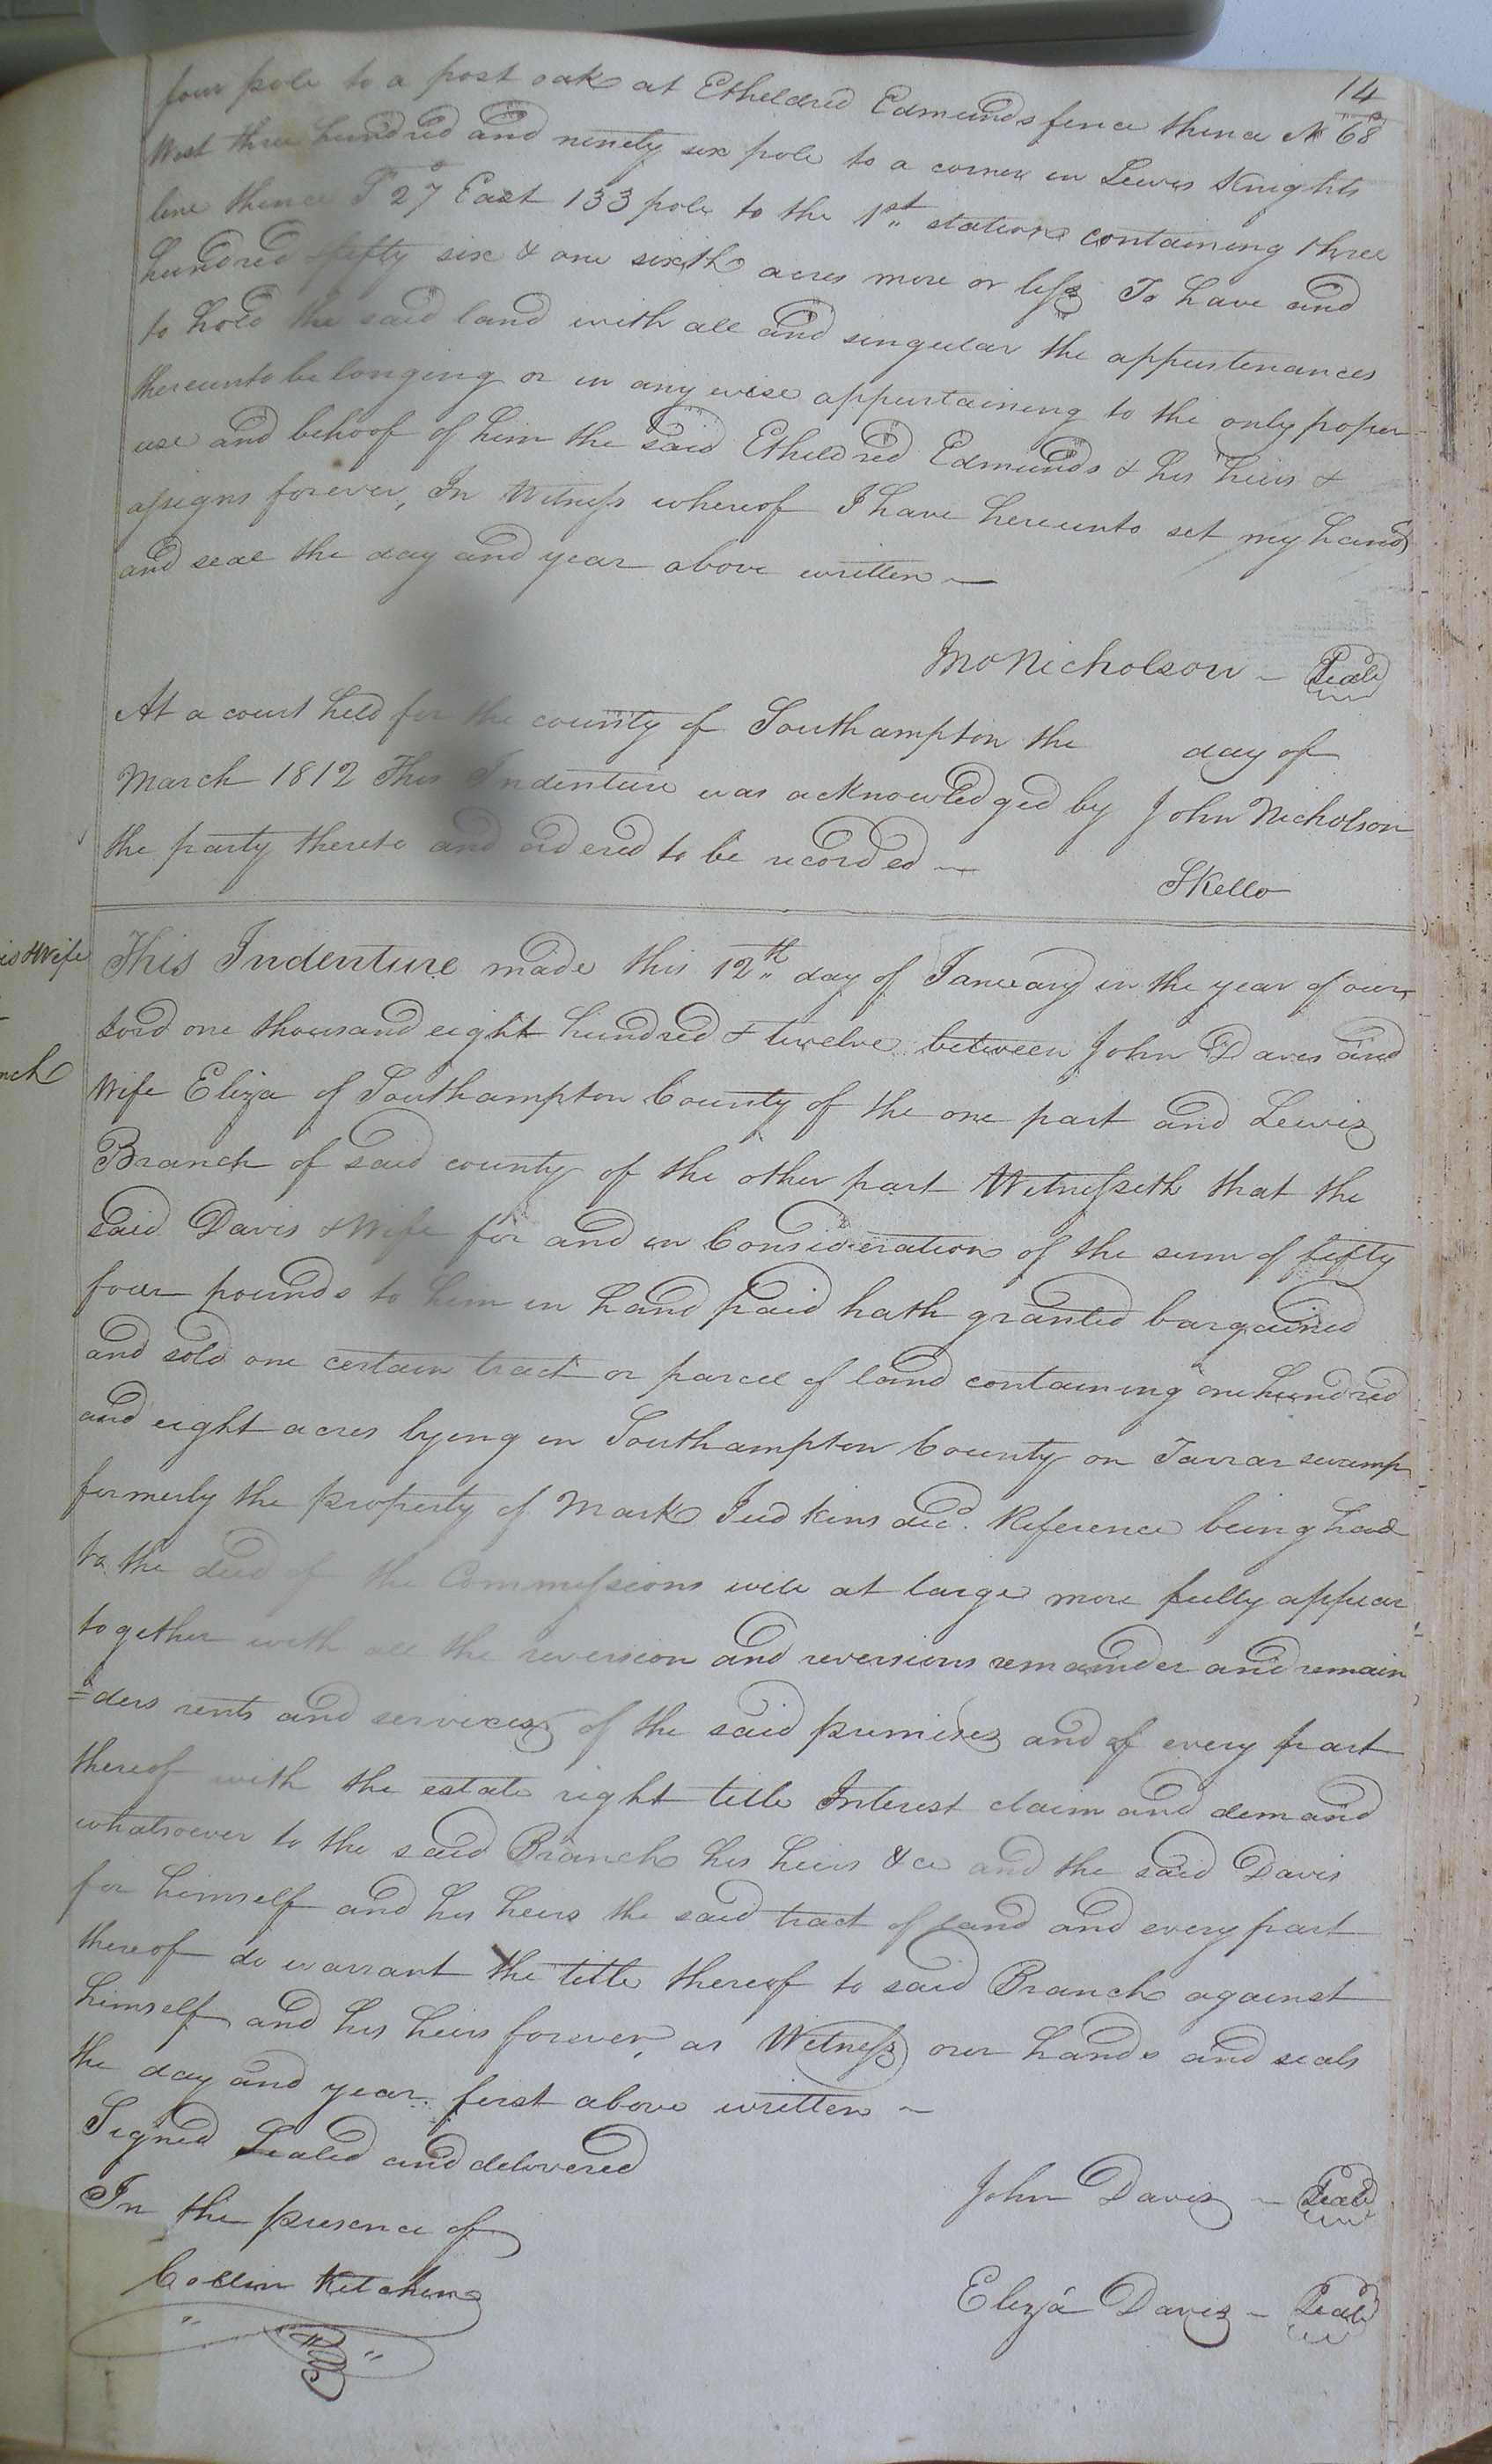 14
four pole to a post oak at Etheldred Edmunds fence thence N 68°
West three hundred and ninety six pole to a corner in Lewis Knights
line thence S 27° East 133 pole to the 1st station containing three
hundred & fifty six & one sixth acres more or less To have and
to hold the said land with all and singular the appurtenances
thereunto belonging or in any wise appurtaining to the only proper
use and behoof of him the said Etheldred Edmunds & his heirs &
assigns forever, In Witness whereof I have hereunto set my hand
and seal the day and year above written —
Jno Nicholson — Seal
At a court held for the county of Southampton the day of
March 1812 This Indenture was acknowledged by John Nicholson
the party thereto and ordered to be recorded —
SKello
is & Wife
nch
This Indenture made this 12th day of January in the year of our
Lord one thousand eight hundred & twelve between John Davis and
Wife Eliza of Southampton County of the one part and Lewis
Branch of said county of the other part Witnesseth that the
said Davis & Wife for and in Consideration of the sum of fifty
four pounds to him in hand paid hath granted bargained
and sold one certain tract or parcel of land containing one hundred
and eight acres lying in Southampton County on Tarrar swamp
formerly the property of Mark Judkins decd. Reference being had
to the deed of the Commissions will at large more fully appear
together with all the reversion and reversions remainder and remain
=ders rents and services of the said premises and of every part
thereof with the estate right title Interest claim and demand
whatsoever to the said Branch his heirs &ce and the said Davis
for himself and his heirs the said tract of land and every part
thereof do warrant the title thereof to said Branch against
himself and his heirs forever, as Witness our hands and seals
the day and year first above written —
Signed Sealed and delivered
In the presence of
John Davis — Seal
Collin Kitchen
Eliza Davis — Seal